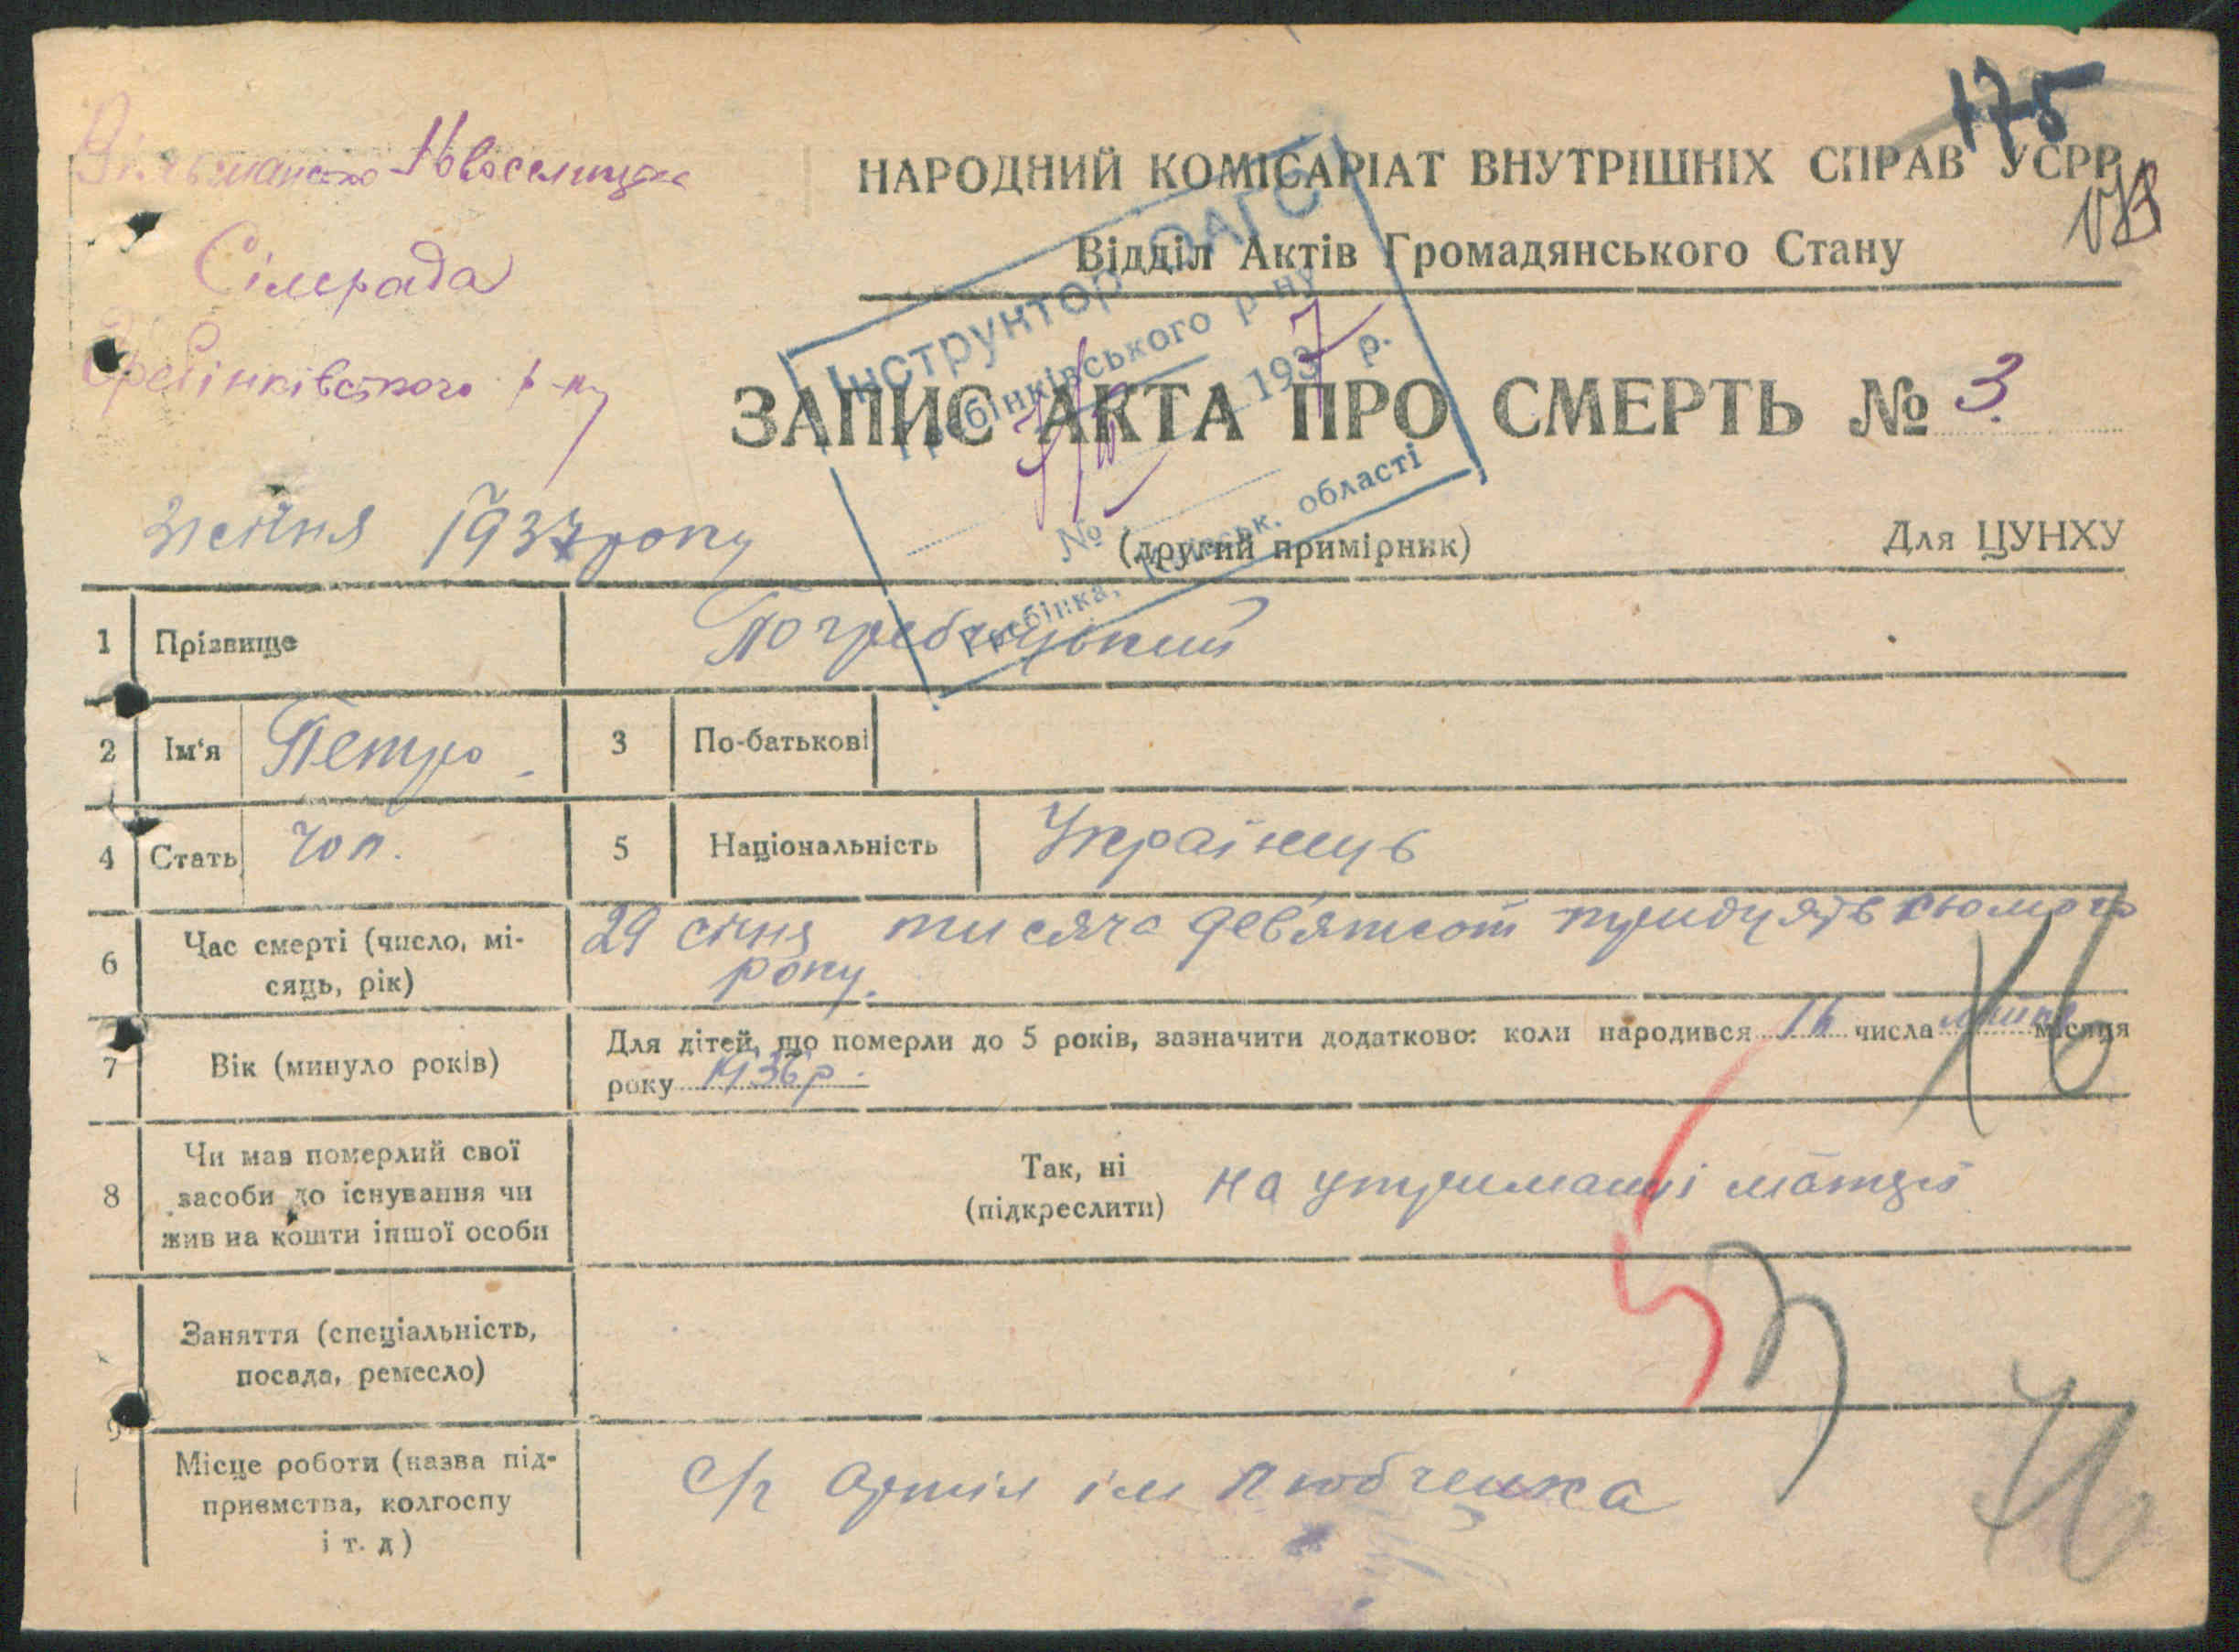 175
Новоселицька
Сілрада
Гребінківського р-ну
НАРОДНИЙ КОМІСАРІАТ ВНУТРІШНІХ СПРАВ УСРР
Відділ Актів Громадянського Стану
Інструктор ЗАГС
Гребінківського р-ну
1937 р.
№
Гребінка, області
ЗАПИС АКТА ПРО СМЕРТЬ № 3
1937 року
(другий примірник)
Для ЦУНХУ
1 Прізвище Погребицький
2 Ім'я Петро 3 По-батькові
4 Стать чол. 5 Національність Українець
6 Час смерті (число, мі-
сяць, рік)
29 січня тисяча дев'ятсот тридцять сьомого
року.
7 Вік (минуло років)
Для дітей, що померли до 5 років, зазначити додатково: коли народився 16 числа місяця
року 1936 р.
8 Чи мав померлий свої
засоби до існування чи
жив на кошти іншої особи
Так, ні
(підкреслити)
на утриманні матері
9
Заняття (спеціальність,
посада, ремесло)
Місце роботи (назва під-
приємства, колгоспу
і т. д)
с/г Артіль ім Любченка